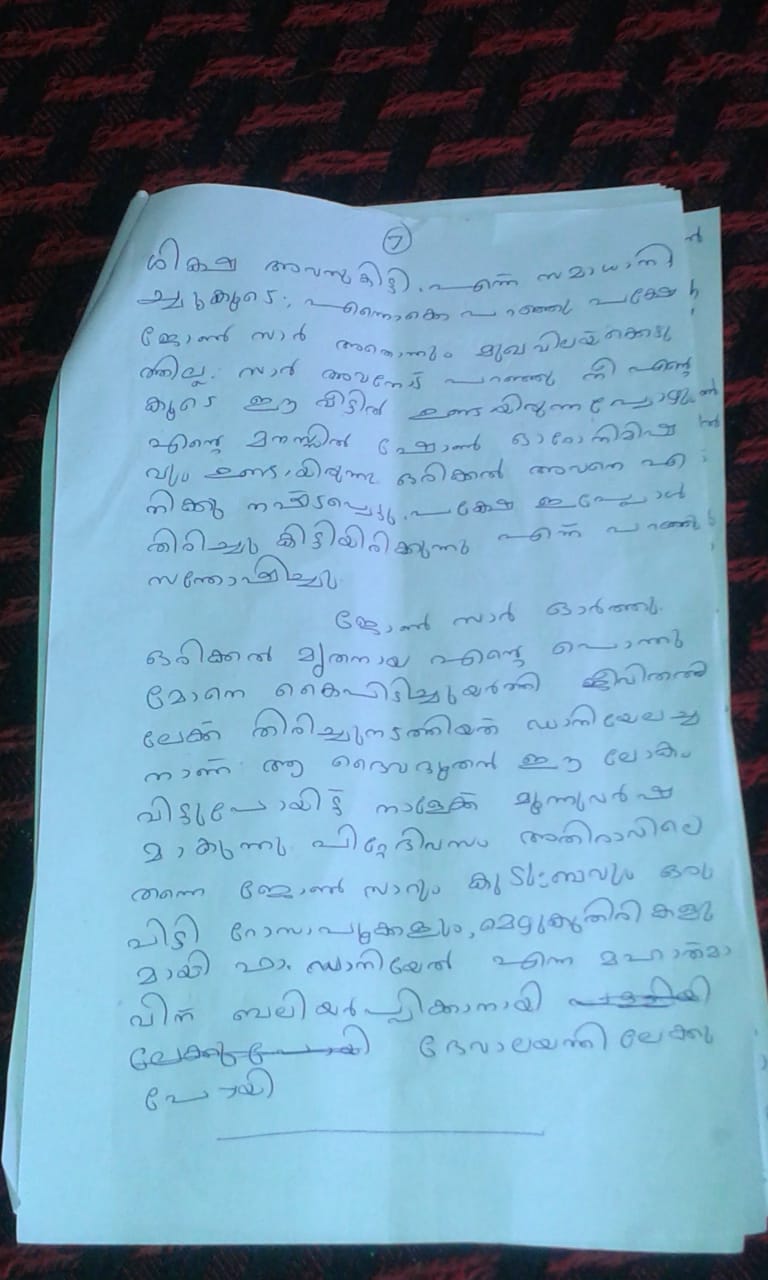 7
ശിക്ഷ അവനുകിട്ടി. എന്ന് സമാധാനി
ച്ചുകൂടെ; എന്നൊക്കെ പറഞ്ഞു പക്ഷേ
ജോൺ സാർ അതൊന്നും മുഖവിലയ്ക്കെടു
ത്തില്ല. സാർ അവനോട് പറഞ്ഞു നീ എന്റെ
കൂടെ ഈ വീട്ടിൽ ഉണ്ടായിരുന്നപ്പോഴും
എന്റെ മനസ്സിൽ ഷോൺ ഓരോനിമിഷ
വും ഉണ്ടായിരുന്നു ഒരിക്കൽ അവനെ എ
നിക്കു നഷ്ടപ്പെട്ടു. പക്ഷേ ഇപ്പോൾ
തിരിച്ചു കിട്ടിയിരിക്കുന്നു എന്ന് പറഞ്ഞു
സന്തോഷിച്ചു.
ജോൺ സാർ ഓർത്തു.
ഒരിക്കൽ മൃതനായ എന്റെ പൊന്നു
മോനെ കൈപിടിച്ചുയർത്തി ജീവിതത്തി
ലേക്ക് തിരിച്ചുനടത്തിയത് ഡാനിയേലച്ച
നാണ് ആ ദൈവദൂതൻ ഈ ലോകം
വിട്ടുപോയിട്ട് നാളേക്ക് മൂന്നുവർഷ
മാകുന്നു. പിറ്റേദിവസം അതിരാവിലെ
തന്നെ ജോൺ സാറും കുടുംബവും ഒരു
പിടി റോസാപൂക്കളും, മെഴുകുതിരികളു
മായി ഫാ. ഡാനിയേൽ എന്ന മഹാത്മാ
വിന് ബലിയർപ്പിക്കാനായി പള്ളിയി
ലേക്കുപോയി ദേവാലയത്തിലേക്കു
പോയി